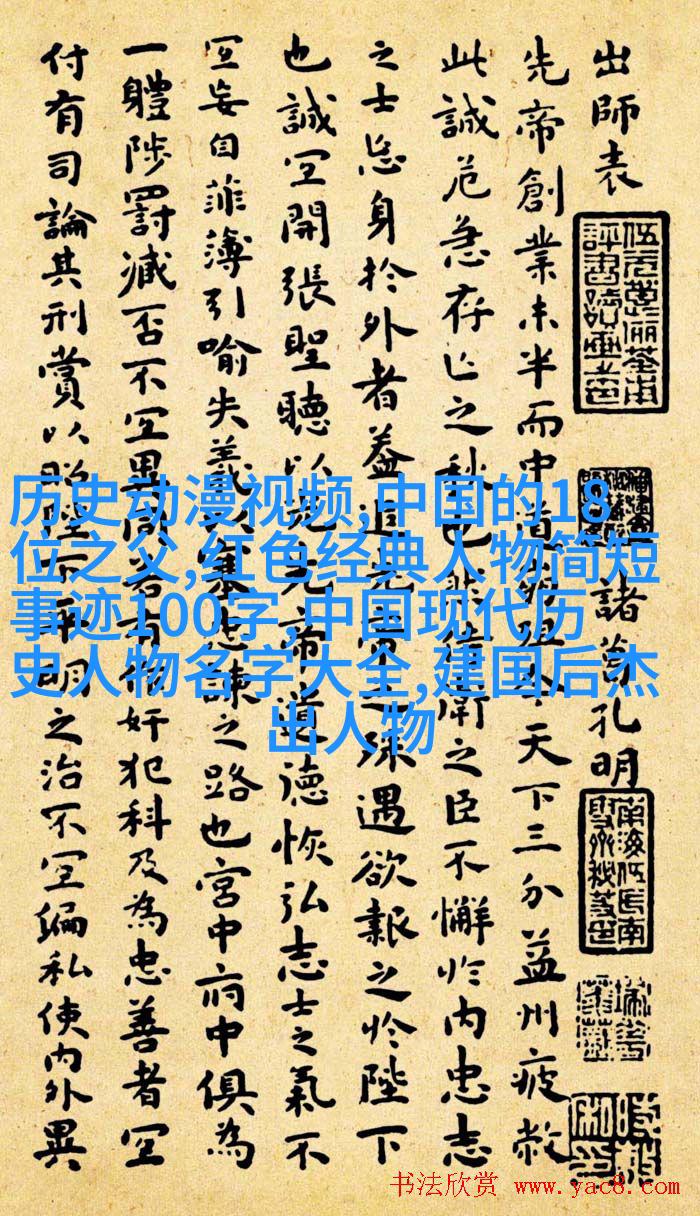 出師表 諸葛孔明
先帝創業未半而中道崩殂今天下三分益州疲敝
此誠危急存亡之秋也然侍衛之臣不懈於內忠志
之士忘身於外者蓋追先帝之殊遇欲報之於陛下
也誠宜開張聖聽以光先帝遺德恢弘志士之氣不
宜妄自菲薄引喻失義以塞忠諫之路也宮中府中俱為
一體陟罰臧否不宜異同若有作奸犯科及為忠善者宜
付有司論其刑賞以昭陛下平明之治不宜偏私使內外異
历史动漫视频,中国的18
位之父,红色经典人物简短
事迹100字,中国现代历
史人物名字大全,建国后杰
出人物
书法欣赏 www.yac8.com